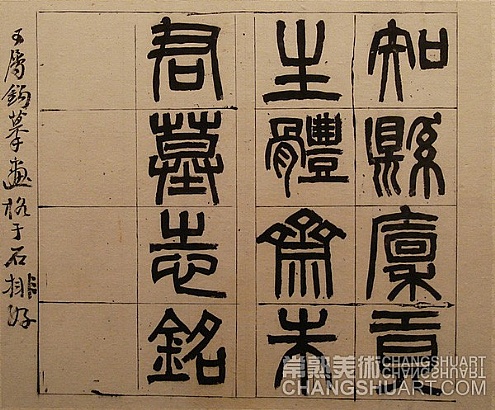 知縣廩貢
生體齋朱
君墓志銘
屬鉤摹畫格于石排好
常熟美術 CHANGSHUART
CHANGSHUART.COM